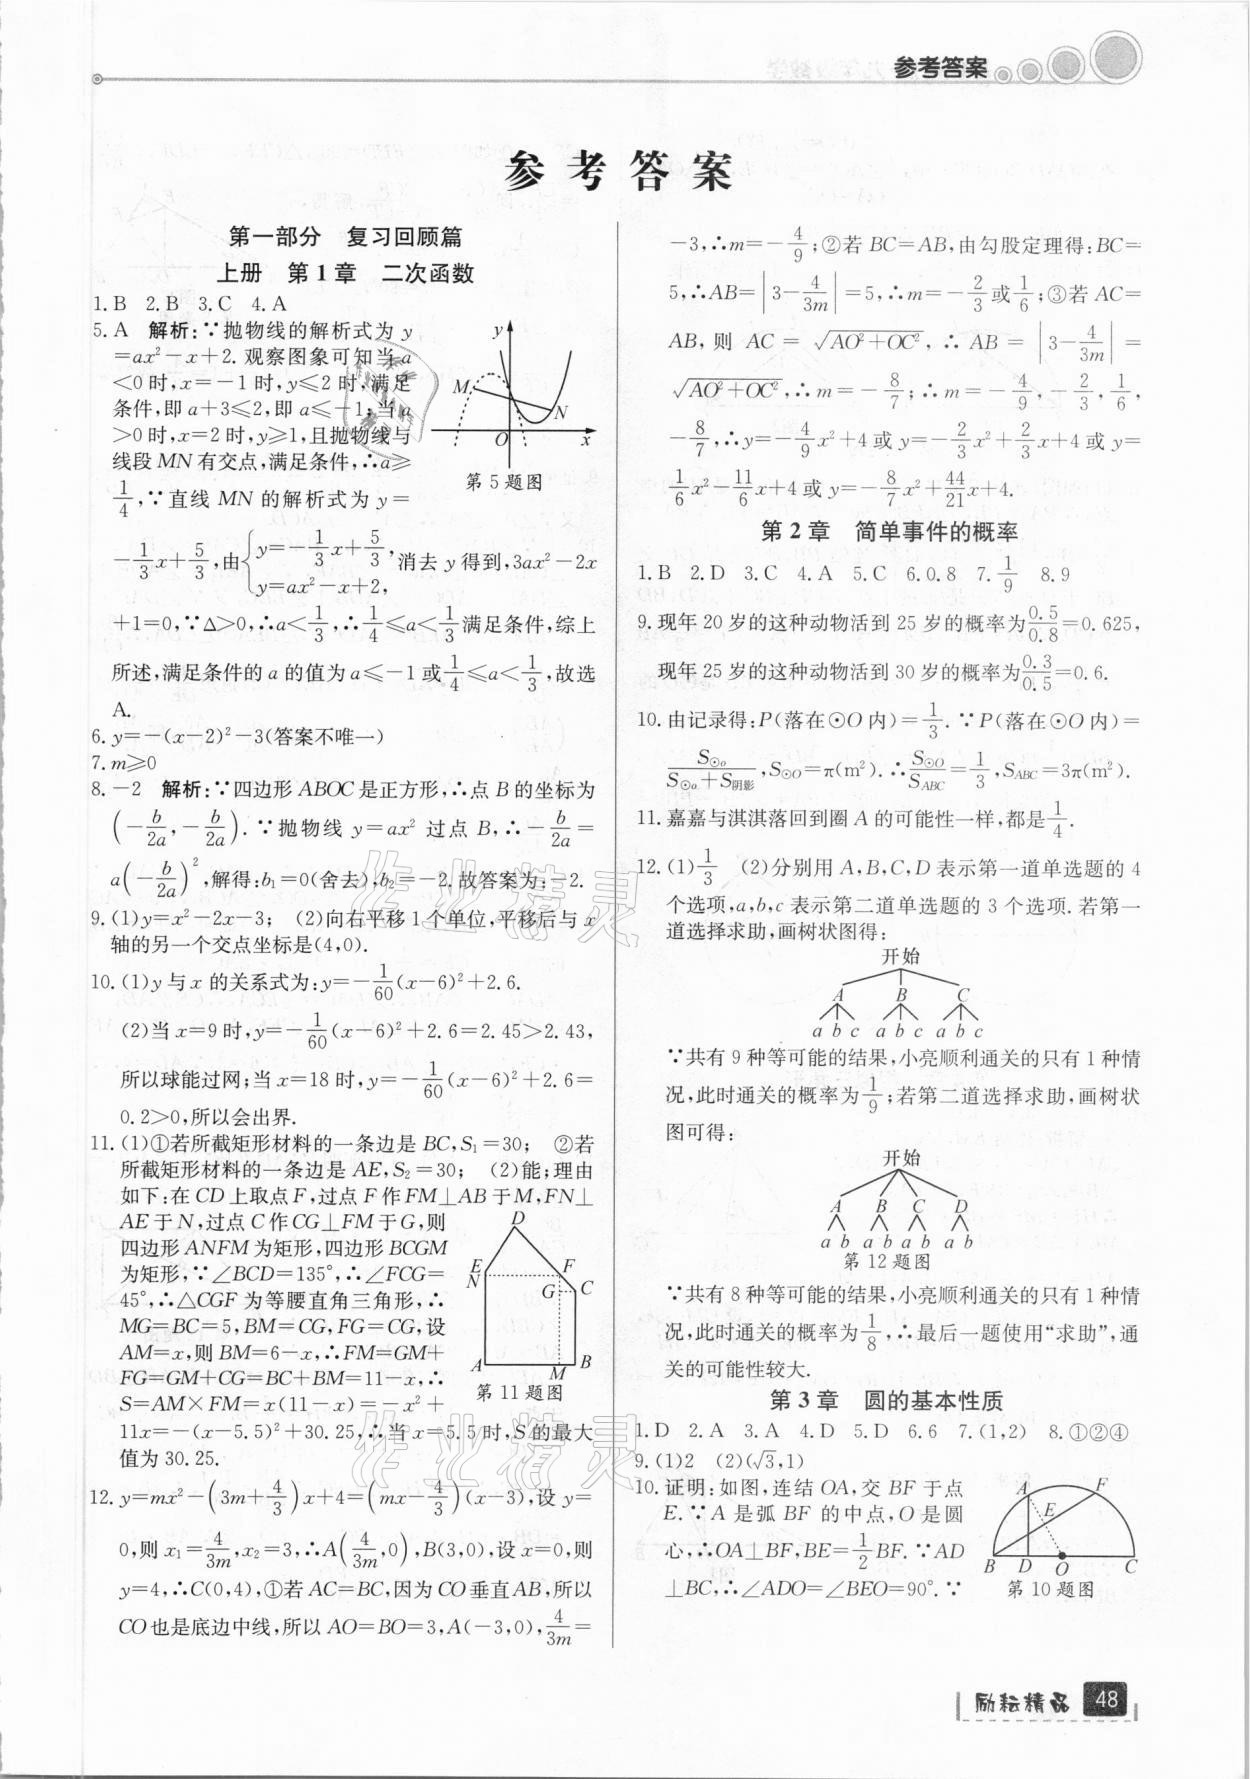 参考答案
参考答案
第一部分 复习回顾篇
上册 第1章 二次函数
1.B 2.B 3.C 4.A
5.A 解析:∵抛物线的解析式为 y
=ax²-x+2.观察图象可知当a
<0时,x=-1时,y≤2时,满足
条件,即a+3≤2,即a≤-1;当a
>0时,x=2时,y≥1,且抛物线与
线段MN有交点,满足条件,∴a≥
1/4,∵直线MN的解析式为y=
-1/3x+5/3,由{y=-1/3x+5/3, y=ax²-x+2,消去y得到,3ax²-2x
+1=0,∵Δ>0,∴a<1/3,∴1/4≤a<1/3满足条件,综上
所述,满足条件的a的值为a≤-1或1/4≤a<1/3,故选
A.
y
M
N
O
x
第5题图
6.y=-(x-2)²-3(答案不唯一)
7.m≥0
8.-2 解析:∵四边形ABOC是正方形,∴点B的坐标为
(-b/2a,-b/2a).∵抛物线y=ax²过点B,∴-b/2a=
a(-b/2a)²,解得:b₁=0(舍去),b₂=-2.故答案为:-2.
9.(1)y=x²-2x-3; (2)向右平移1个单位,平移后与x
轴的另一个交点坐标是(4,0).
10.(1)y与x的关系式为:y=-1/60(x-6)²+2.6.
(2)当x=9时,y=-1/60(x-6)²+2.6=2.45>2.43,
所以球能过网;当x=18时,y=-1/60(x-6)²+2.6=
0.2>0,所以会出界.
11.(1)①若所截矩形材料的一条边是BC,S₁=30; ②若
所截矩形材料的一条边是AE,S₂=30; (2)能;理由
如下:在CD上取点F,过点F作FM⊥AB于M,FN⊥
AE于N,过点C作CG⊥FM于G,则
四边形ANFM为矩形,四边形BCGM
为矩形,∵∠BCD=135°,∴∠FCG=
45°,∴△CGF为等腰直角三角形,∴
MG=BC=5,BM=CG,FG=CG,设
AM=x,则BM=6-x,∴FM=GM+
FG=GM+CG=BC+BM=11-x,∴
S=AM×FM=x(11-x)=-x²+
11x=-(x-5.5)²+30.25,∴当x=5.5时,S的最大
值为30.25.
D
E
F
N
G
C
A
M
B
第11题图
12.y=mx²-(3m+4/3)x+4=(mx-4/3)(x-3),设y=
0,则x₁=4/3m,x₂=3,∴A(4/3m,0),B(3,0),设x=0,则
y=4,∴C(0,4),①若AC=BC,因为CO垂直AB,所以
CO也是底边中线,所以AO=BO=3,A(-3,0),4/3m=
-3,∴m=-4/9;②若BC=AB,由勾股定理得:BC=
5,∴AB=|3-4/3m|=5,∴m=-2/3或1/6;③若AC=
AB,则AC=√AO²+OC²,∴AB=|3-4/3m|=
√AO²+OC²,∴m=-8/7;∴m=-4/9,-2/3,1/6,
-8/7,∴y=-4/9x²+4或y=-2/3x²+2/3x+4或y=
1/6x²-11/6x+4或y=-8/7x²+44/21x+4.
第2章 简单事件的概率
1.B 2.D 3.C 4.A 5.C 6.0.8 7.1/9 8.9
9.现年20岁的这种动物活到25岁的概率为0.5/0.8=0.625,
现年25岁的这种动物活到30岁的概率为0.3/0.5=0.6.
10.由记录得:P(落在⊙O内)=1/3.∵P(落在⊙O内)=
S⊙o/S⊙o+S阴影,S⊙O=π(m²).∴S⊙O/SABC=1/3,SABC=3π(m²).
11.嘉嘉与淇淇落回到圈A的可能性一样,都是1/4.
12.(1)1/3 (2)分别用A,B,C,D表示第一道单选题的4
个选项,a,b,c表示第二道单选题的3个选项.若第一
道选择求助,画树状图得:
开始
A B C
a b c a b c a b c
∵共有9种等可能的结果,小亮顺利通关的只有1种情
况,此时通关的概率为1/9;若第二道选择求助,画树状
图可得:
开始
A B C D
a b a b a b a b
第12题图
∵共有8种等可能的结果,小亮顺利通关的只有1种情
况,此时通关的概率为1/8,∴最后一题使用“求助”,通
关的可能性较大.
第3章 圆的基本性质
1.D 2.A 3.A 4.D 5.D 6.6 7.(1,2) 8.①②④
9.(1)2 (2)(√3,1)
10.证明:如图,连结OA,交BF于点
E.∵A是弧BF的中点,O是圆
心,∴OA⊥BF,BE=1/2BF.∵AD
⊥BC,∴∠ADO=∠BEO=90°.∵
A
F
E
B D O C
第10题图
作业精灵
作业精灵
励耘精品 48